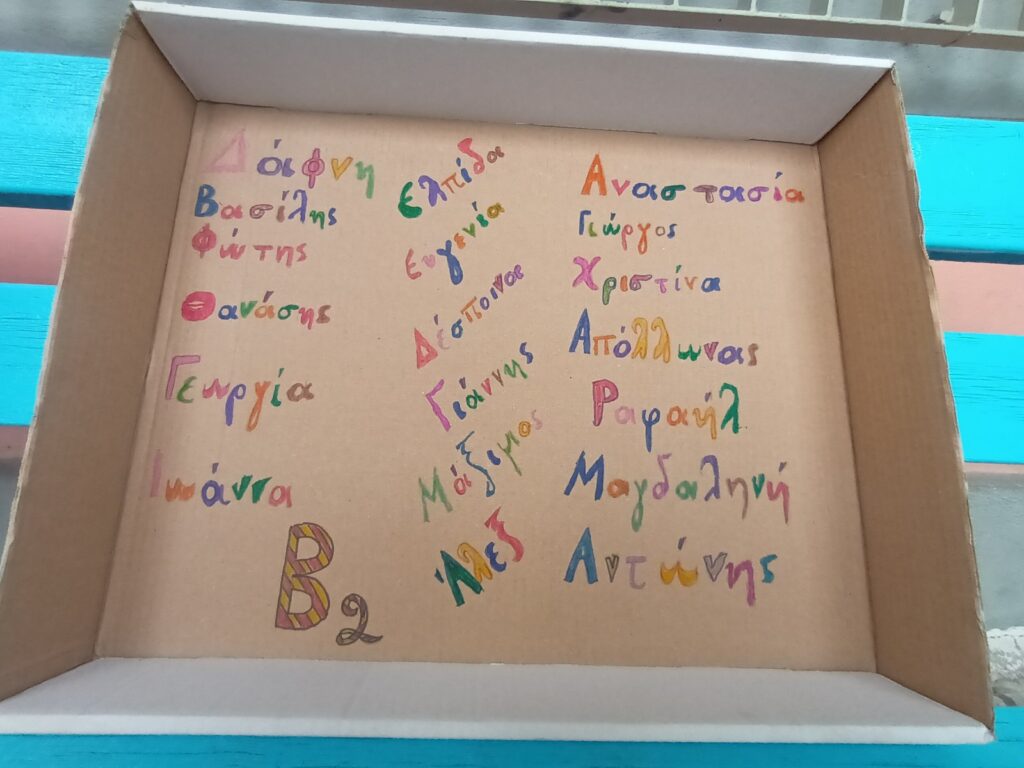 Δάφνη
Βασίλης
Φώτης
Θανάσης
Γεωργία
Ιωάννα
Β2
Ελπίδα
Ευγενία
Δέσποινα
Γιάννης
Μάξιμος
Άλεξ
Αναστασία
Γιώργος
Χριστίνα
Απόλλωνας
Ραφαήλ
Μαγδαληνή
Αντώνης